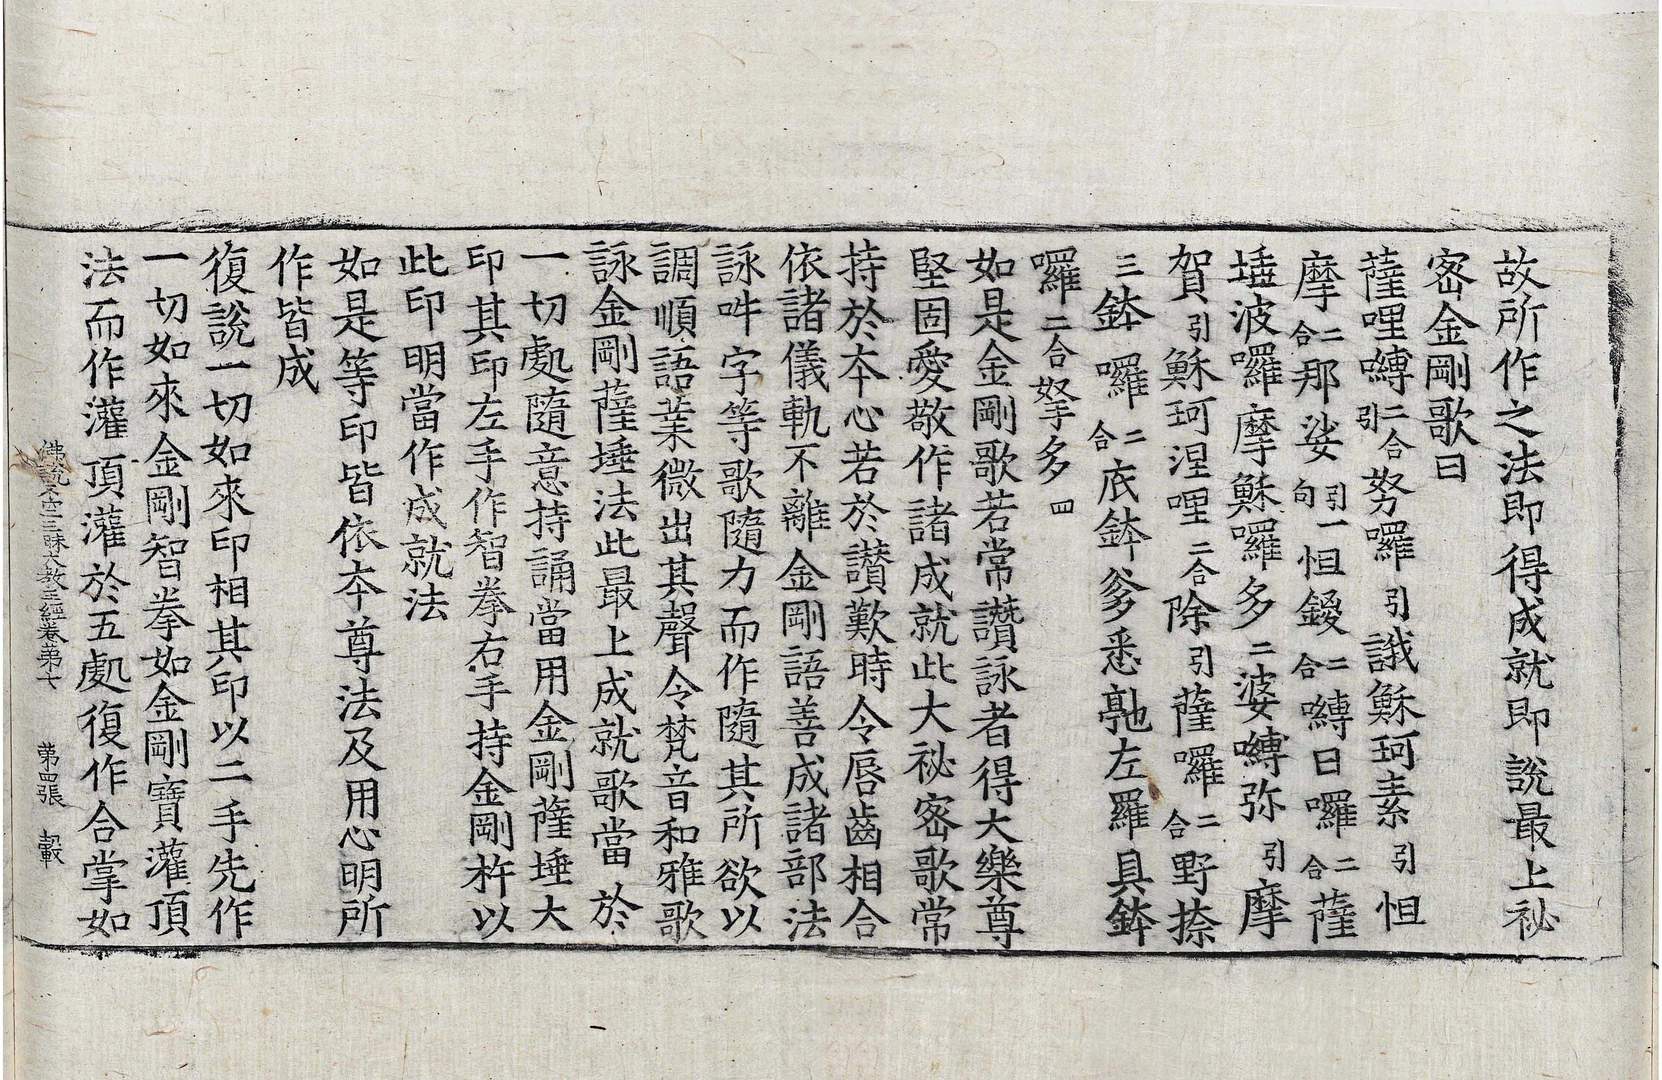 故所作之法即得成就即說最上祕
密金剛歌曰
薩哩嚩二合引努囉引誐穌珂素引怛
摩二合那娑引句一怛鑁二合嚩日囉二合薩
埵波囉摩穌囉多二婆嚩弥引摩
賀引穌珂涅哩二合除引薩囉二合野捺
三鉢囉二合底鉢爹悉馳左羅具鉢
囉二合拏多四
如是金剛歌若常讚詠者得大樂尊
堅固愛敬作諸成就此大祕密歌常
持於本心若於讚歎時令唇齒相合
依諸儀軌不離金剛語善成諸部法
詠吽字等歌隨力而作隨其所欲以
調順語業微出其聲令梵音和雅歌
詠金剛薩埵法此最上成就歌當於
一切處隨意持誦當用金剛薩埵大
印其印左手作智拳右手持金剛杵以
此印明當作成就法
如是等印皆依本尊法及用心明所
作皆成
復說一切如來印相其印以二手先作
一切如來金剛智拳如金剛寶灌頂
法而作灌頂灌於五處復作合掌如
佛說不空三昧大教王經卷第七　第四張　轂